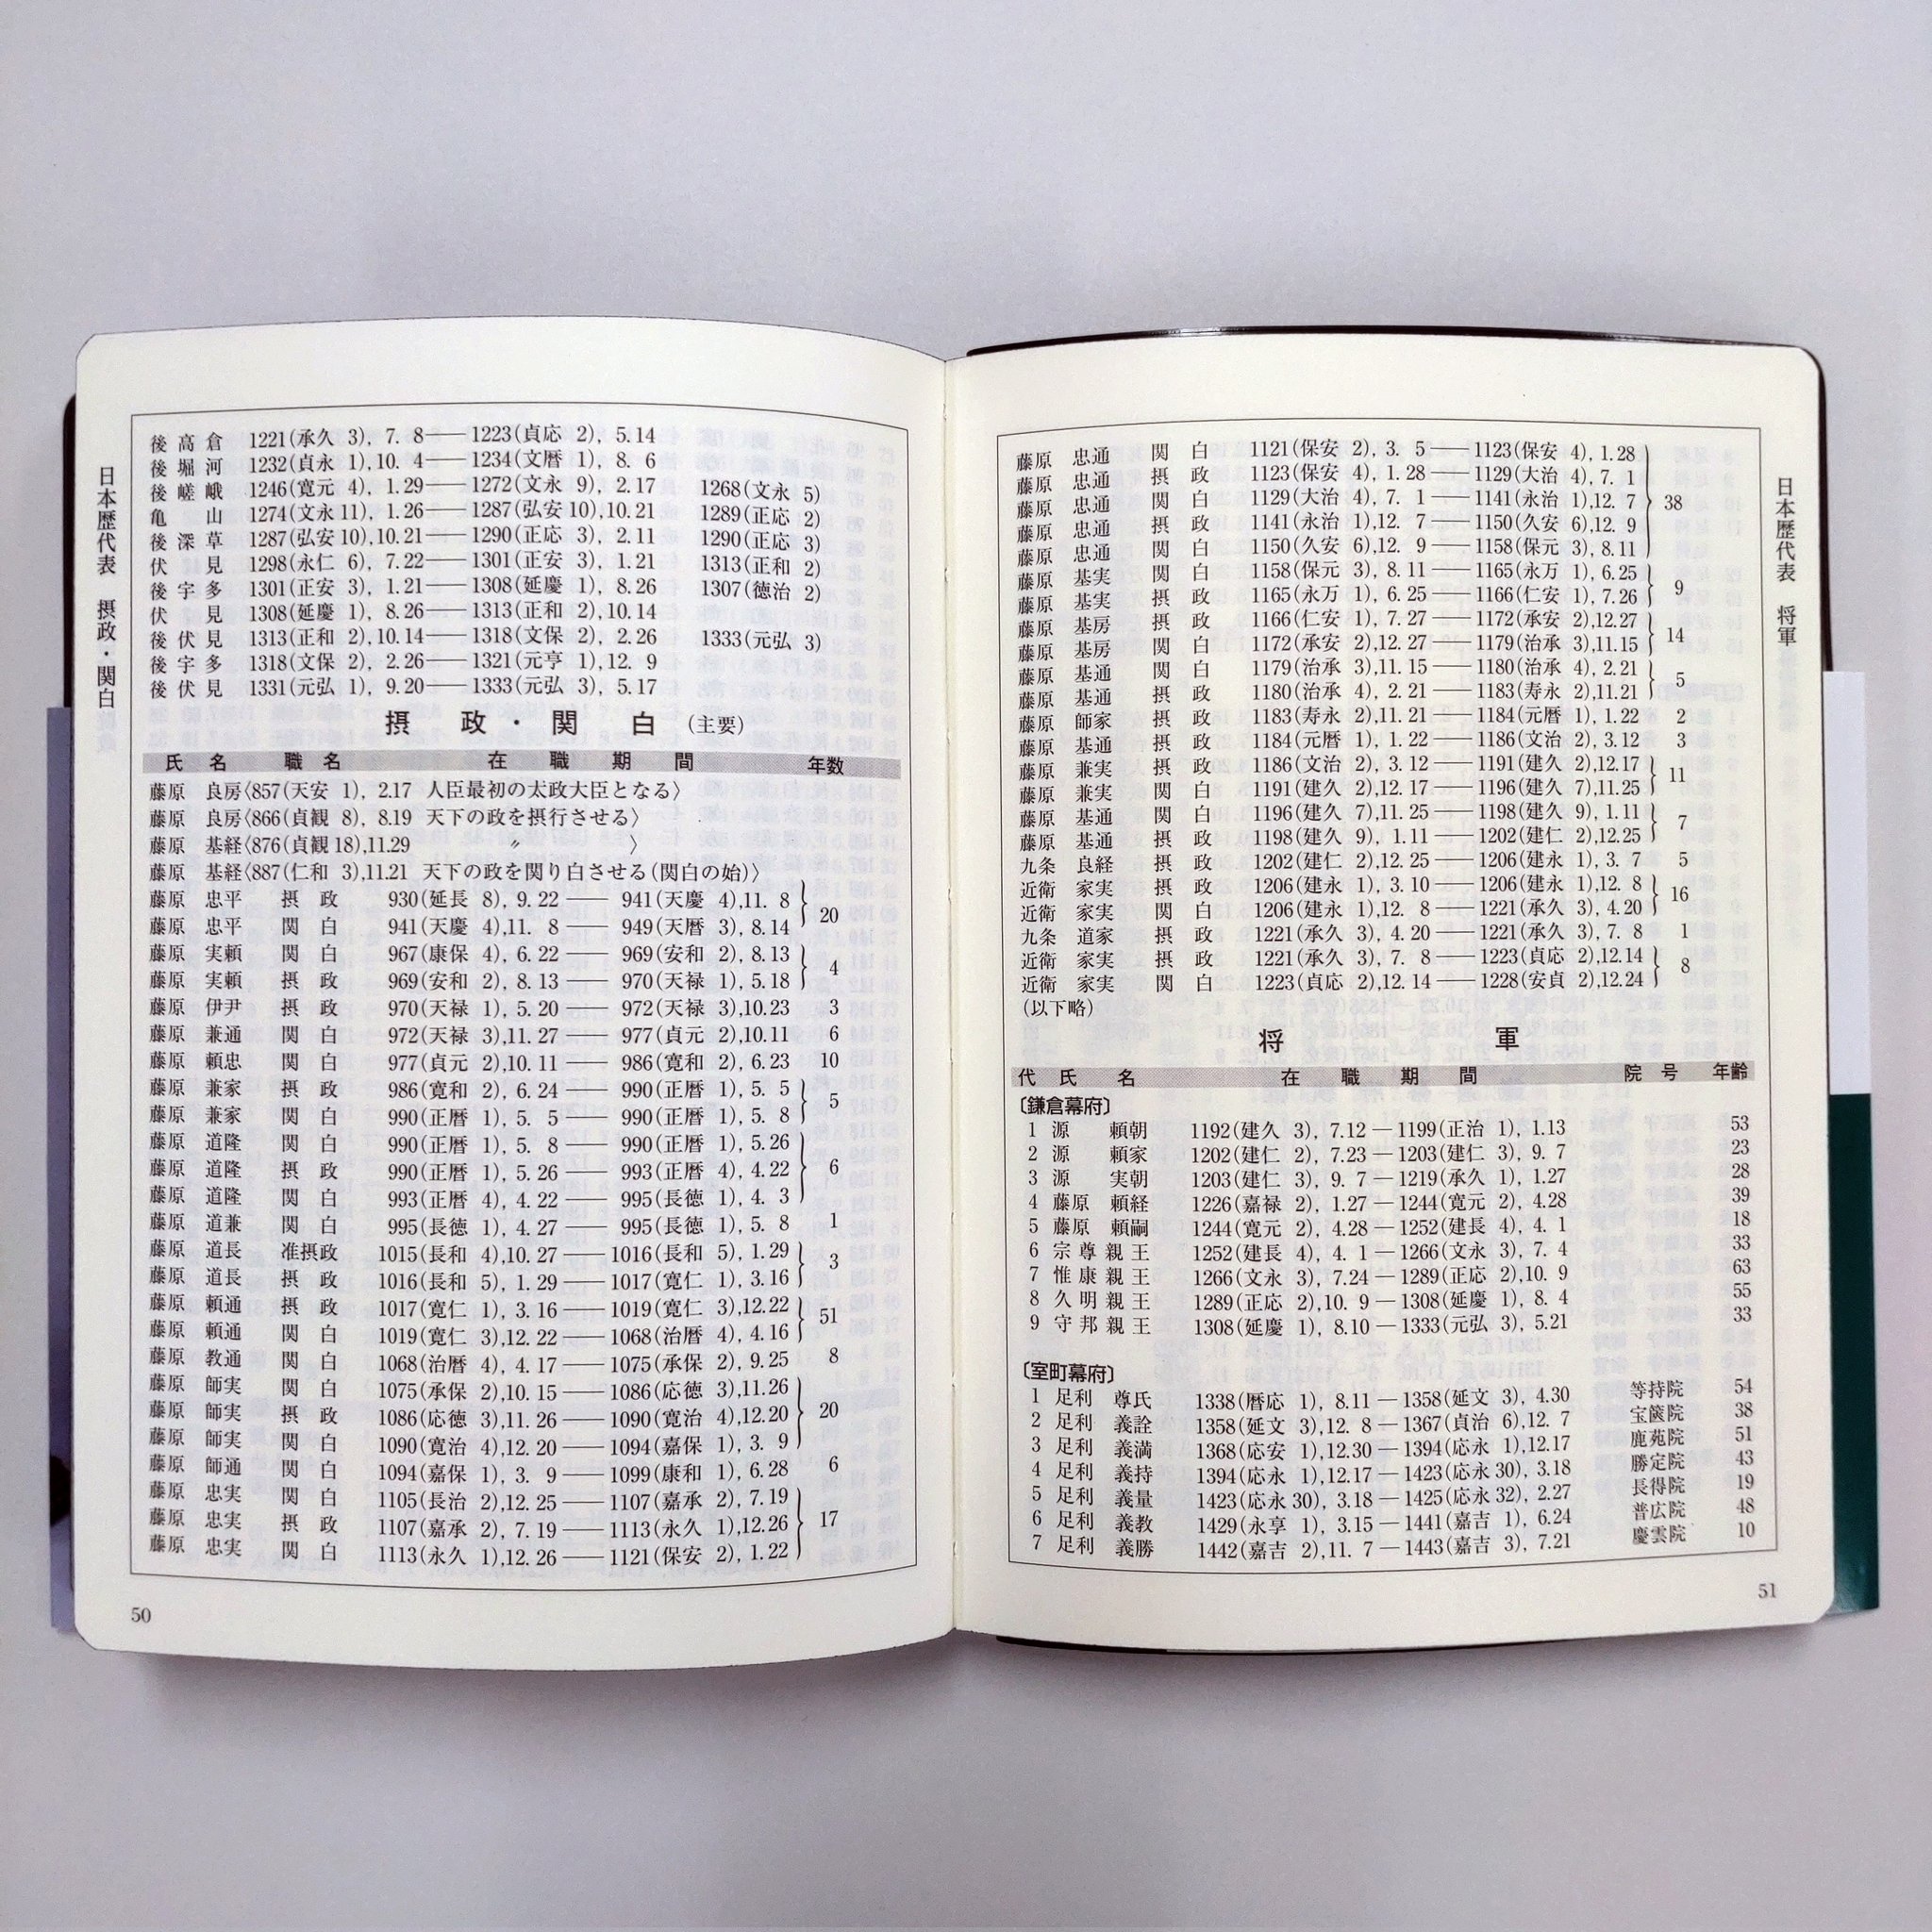 日本歴代表　摂政・関白
後高倉　1221(承久 3), 7. 8——1223(貞応 2), 5.14
後堀河　1232(貞永 1),10. 4——1234(文暦 1), 8. 6
後嵯峨　1246(寛元 4), 1.29——1272(文永 9), 2.17　1268(文永 5)
亀山　1274(文永11), 1.26——1287(弘安10),10.21　1289(正応 2)
後深草　1287(弘安10),10.21——1290(正応 3), 2.11　1290(正応 3)
伏見　1298(永仁 6), 7.22——1301(正安 3), 1.21　1313(正和 2)
後宇多　1301(正安 3), 1.21——1308(延慶 1), 8.26　1307(徳治 2)
伏見　1308(延慶 1), 8.26——1313(正和 2),10.14
後伏見　1313(正和 2),10.14——1318(文保 2), 2.26　1333(元弘 3)
後宇多　1318(文保 2), 2.26——1321(元亨 1),12. 9
後伏見　1331(元弘 1), 9.20——1333(元弘 3), 5.17
摂政・関白(主要)
氏名　職名　在職期間　年数
藤原　良房〈857(天安 1), 2.17 人臣最初の太政大臣となる〉
藤原　良房〈866(貞観 8), 8.19 天下の政を摂行させる〉
藤原　基経〈876(貞観18),11.29　〃　〉
藤原　基経〈887(仁和 3),11.21 天下の政を関り白させる(関白の始)〉
藤原　忠平　摂政　930(延長 8), 9.22——941(天慶 4),11. 8
藤原　忠平　関白　941(天慶 4),11. 8——949(天暦 3), 8.14　20
藤原　実頼　関白　967(康保 4), 6.22——969(安和 2), 8.13
藤原　実頼　摂政　969(安和 2), 8.13——970(天禄 1), 5.18　4
藤原　伊尹　摂政　970(天禄 1), 5.20——972(天禄 3),10.23　3
藤原　兼通　関白　972(天禄 3),11.27——977(貞元 2),10.11　6
藤原　頼忠　関白　977(貞元 2),10.11——986(寛和 2), 6.23　10
藤原　兼家　摂政　986(寛和 2), 6.24——990(正暦 1), 5. 5
藤原　兼家　関白　990(正暦 1), 5. 5——990(正暦 1), 5. 8　5
藤原　道隆　関白　990(正暦 1), 5. 8——990(正暦 1), 5.26
藤原　道隆　摂政　990(正暦 1), 5.26——993(正暦 4), 4.22　6
藤原　道隆　関白　993(正暦 4), 4.22——995(長徳 1), 4. 3
藤原　道兼　関白　995(長徳 1), 4.27——995(長徳 1), 5. 8　1
藤原　道長　准摂政　1015(長和 4),10.27——1016(長和 5), 1.29
藤原　道長　摂政　1016(長和 5), 1.29——1017(寛仁 1), 3.16　3
藤原　頼通　摂政　1017(寛仁 1), 3.16——1019(寛仁 3),12.22
藤原　頼通　関白　1019(寛仁 3),12.22——1068(治暦 4), 4.16　51
藤原　教通　関白　1068(治暦 4), 4.17——1075(承保 2), 9.25　8
藤原　師実　関白　1075(承保 2),10.15——1086(応徳 3),11.26
藤原　師実　摂政　1086(応徳 3),11.26——1090(寛治 4),12.20　20
藤原　師実　関白　1090(寛治 4),12.20——1094(嘉保 1), 3. 9
藤原　師通　関白　1094(嘉保 1), 3. 9——1099(康和 1), 6.28　6
藤原　忠実　関白　1105(長治 2),12.25——1107(嘉承 2), 7.19
藤原　忠実　摂政　1107(嘉承 2), 7.19——1113(永久 1),12.26　17
藤原　忠実　関白　1113(永久 1),12.26——1121(保安 2), 1.22
50
日本歴代表　将軍
藤原　忠通　関白　1121(保安 2), 3. 5——1123(保安 4), 1.28
藤原　忠通　摂政　1123(保安 4), 1.28——1129(大治 4), 7. 1
藤原　忠通　関白　1129(大治 4), 7. 1——1141(永治 1),12. 7　38
藤原　忠通　摂政　1141(永治 1),12. 7——1150(久安 6),12. 9
藤原　忠通　関白　1150(久安 6),12. 9——1158(保元 3), 8.11
藤原　基実　関白　1158(保元 3), 8.11——1165(永万 1), 6.25
藤原　基実　摂政　1165(永万 1), 6.25——1166(仁安 1), 7.26　9
藤原　基房　摂政　1166(仁安 1), 7.27——1172(承安 2),12.27
藤原　基房　関白　1172(承安 2),12.27——1179(治承 3),11.15　14
藤原　基通　関白　1179(治承 3),11.15——1180(治承 4), 2.21
藤原　基通　摂政　1180(治承 4), 2.21——1183(寿永 2),11.21　5
藤原　師家　摂政　1183(寿永 2),11.21——1184(元暦 1), 1.22　2
藤原　基通　摂政　1184(元暦 1), 1.22——1186(文治 2), 3.12　3
藤原　兼実　摂政　1186(文治 2), 3.12——1191(建久 2),12.17
藤原　兼実　関白　1191(建久 2),12.17——1196(建久 7),11.25　11
藤原　基通　関白　1196(建久 7),11.25——1198(建久 9), 1.11
藤原　基通　摂政　1198(建久 9), 1.11——1202(建仁 2),12.25　7
九条　良経　摂政　1202(建仁 2),12.25——1206(建永 1), 3. 7　5
近衛　家実　摂政　1206(建永 1), 3.10——1206(建永 1),12. 8
近衛　家実　関白　1206(建永 1),12. 8——1221(承久 3), 4.20　16
九条　道家　摂政　1221(承久 3), 4.20——1221(承久 3), 7. 8　1
近衛　家実　摂政　1221(承久 3), 7. 8——1223(貞応 2),12.14
近衛　家実　関白　1223(貞応 2),12.14——1228(安貞 2),12.24　8
(以下略)
将軍
代　氏名　在職期間　院号　年齢
〔鎌倉幕府〕
1　源　頼朝　1192(建久 3), 7.12—1199(正治 1), 1.13　53
2　源　頼家　1202(建仁 2), 7.23—1203(建仁 3), 9. 7　23
3　源　実朝　1203(建仁 3), 9. 7—1219(承久 1), 1.27　28
4　藤原　頼経　1226(嘉禄 2), 1.27—1244(寛元 2), 4.28　39
5　藤原　頼嗣　1244(寛元 2), 4.28—1252(建長 4), 4. 1　18
6　宗尊親王　1252(建長 4), 4. 1—1266(文永 3), 7. 4　33
7　惟康親王　1266(文永 3), 7.24—1289(正応 2),10. 9　63
8　久明親王　1289(正応 2),10. 9—1308(延慶 1), 8. 4　55
9　守邦親王　1308(延慶 1), 8.10—1333(元弘 3), 5.21　33
〔室町幕府〕
1　足利　尊氏　1338(暦応 1), 8.11—1358(延文 3), 4.30　等持院　54
2　足利　義詮　1358(延文 3),12. 8—1367(貞治 6),12. 7　宝篋院　38
3　足利　義満　1368(応安 1),12.30—1394(応永 1),12.17　鹿苑院　51
4　足利　義持　1394(応永 1),12.17—1423(応永30), 3.18　勝定院　43
5　足利　義量　1423(応永30), 3.18—1425(応永32), 2.27　長得院　19
6　足利　義教　1429(永享 1), 3.15—1441(嘉吉 1), 6.24　普広院　48
7　足利　義勝　1442(嘉吉 2),11. 7—1443(嘉吉 3), 7.21　慶雲院　10
51